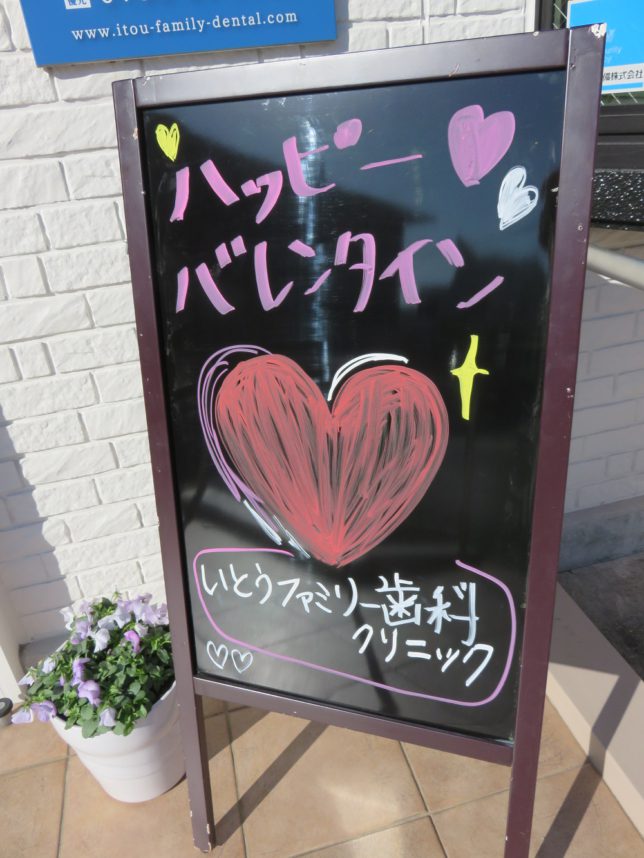 www.itou-family-dental.com
備株式会社
ハッピー
バレンタイン
いとうファミリー歯科
クリニック